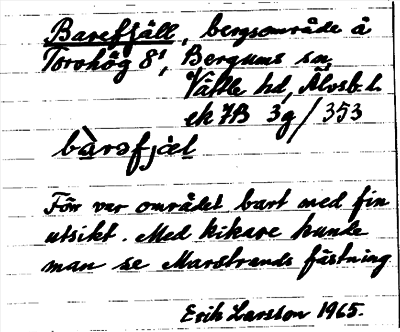 Barefjäll, bergsområde å
Torvhög 8¹, Bergums sn,
Vättle hd, Älvsb. l.
ek 7B 3g/353
bàrəfjæl
Förr var området bart med fin
utsikt. Med kikare kunde
man se Marstrands fästning
Erik Larsson 1965.